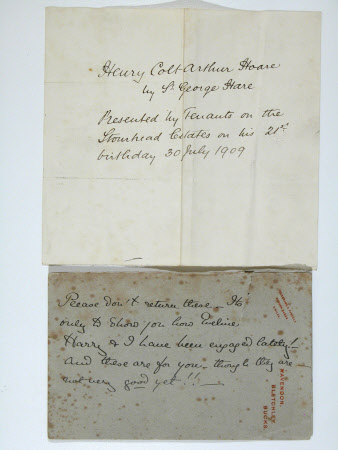 Henry Colt Arthur Hoare
by St George Hare
Presented by Tenants on the
Stourhead Estates on his 21st
birthday 30 July 1909
Please don't return these - Its
only to show you how
Harry & I have been engaged lately!
And these are for you - though they are
not very good yet!!
RAVENDON,
BLETCHLEY,
BUCKS.